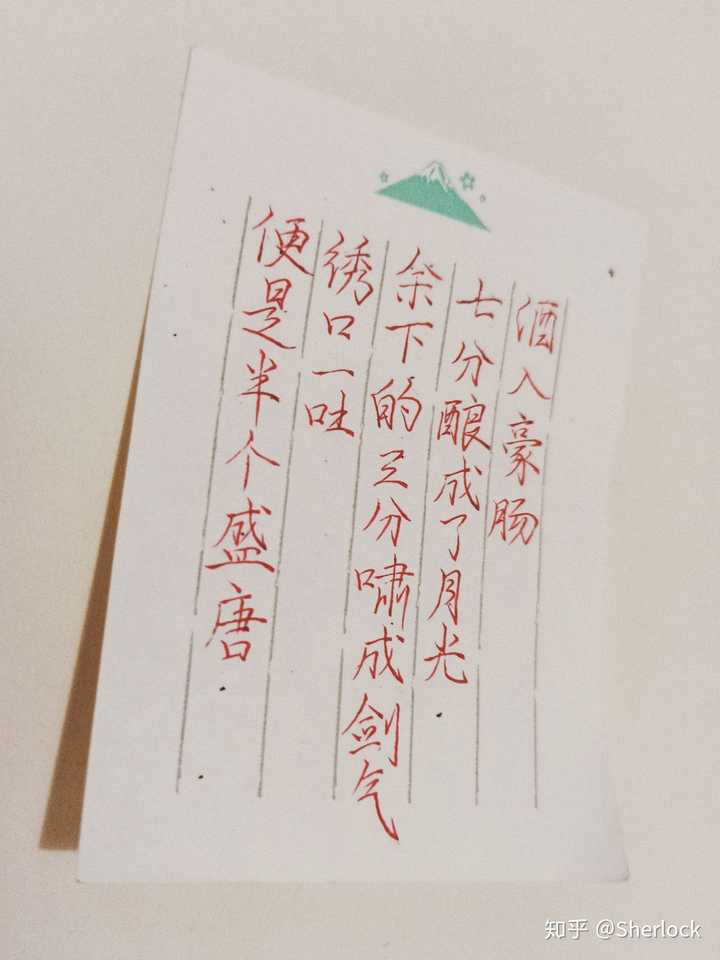 酒入豪肠
七分酿成了月光
余下的三分啸成剑气
绣口一吐
便是半个盛唐
知乎 @Sherlock